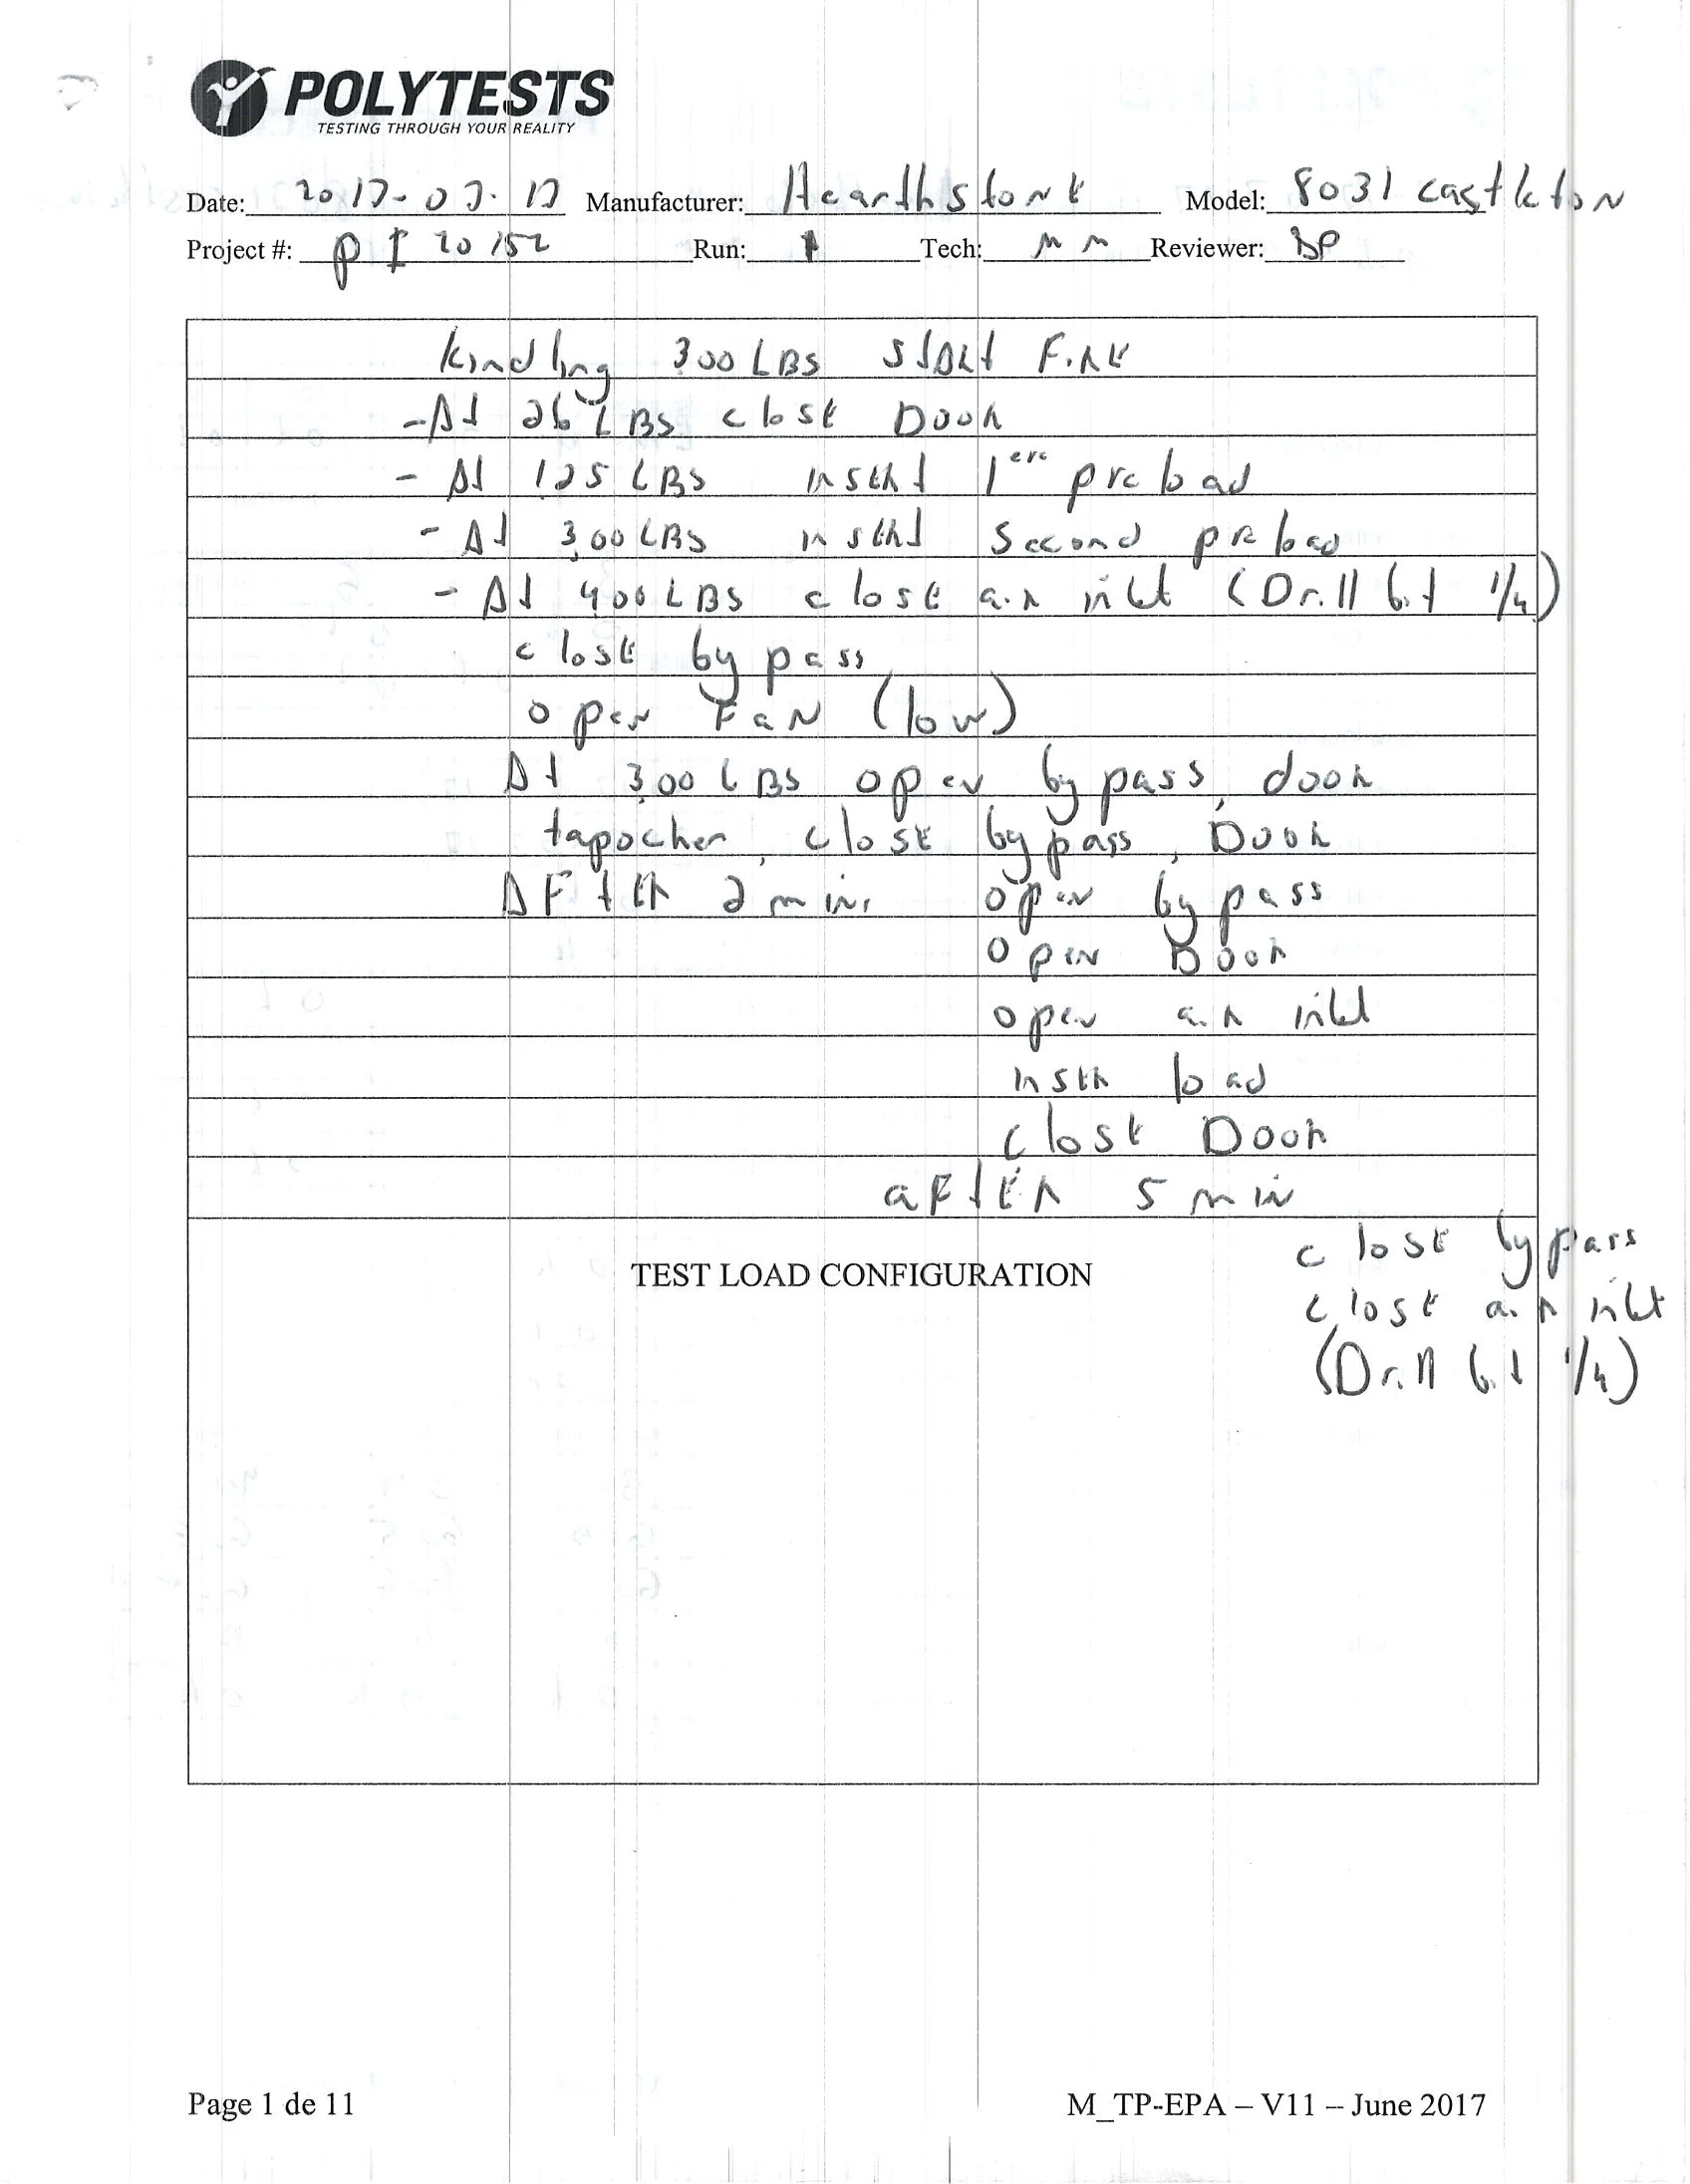 POLYTESTS
TESTING THROUGH YOUR REALITY
Date: 2017-07-17 Manufacturer: Hearthstone Model: 8031 castleton
Project #: PI 20152 Run: 1 Tech: MM Reviewer: DP
Kindling 3.00 LBS Start Fire
- At 2b LBS close Door
- At 1.25 LBS insert 1ere preload
- At 3.00 LBS insert second preload
- At 4.00 LBS close air inlet (Drill bit 1/4)
close by pass
open Fan (low)
At 3.00 LBS open by pass, door
close by pass, Door
AFter 2 min. open by pass
open Door
open air inlet
inser load
close Door
aFtEr 5 min
close bypass
close air inlet
(Drill bit 1/4)
TEST LOAD CONFIGURATION
Page 1 de 11
M_TP-EPA – V11 – June 2017